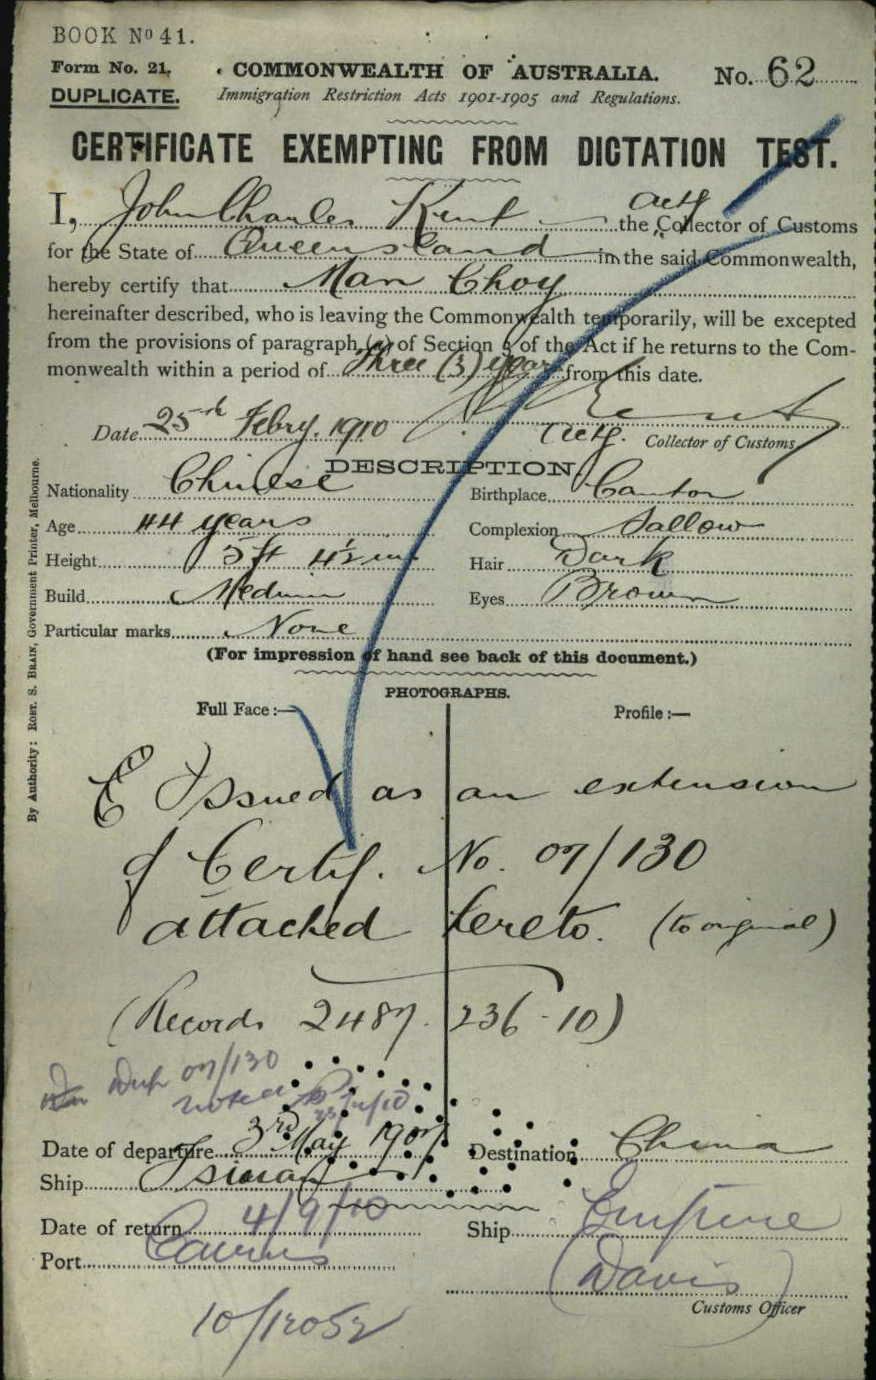 BOOK No 41.
Form No. 21.
COMMONWEALTH OF AUSTRALIA.
No. 62
DUPLICATE.
Immigration Restriction Acts 1901-1905 and Regulations.
CERTIFICATE EXEMPTING FROM DICTATION TEST.
I, John Charles Kent Actg the Collector of Customs
for the State of Queensland in the said Commonwealth,
hereby certify that Man Choy
hereinafter described, who is leaving the Commonwealth temporarily, will be excepted
from the provisions of paragraph (a) of Section 3 of the Act if he returns to the Com-
monwealth within a period of Three (3) years from this date.
Date 25th Febry. 1910 Kent
Actg. Collector of Customs
DESCRIPTION.
Nationality Chinese Birthplace Canton
Age 44 years Complexion Sallow
Height 5 ft 4½ in Hair Dark
Build Medium Eyes Brown
Particular marks None
(For impression of hand see back of this document.)
PHOTOGRAPHS.
Full Face :— Profile :—
Issued as an extension
of Certif. No. 07/130
attached hereto. (to original)
(Records 2487. 236-10)
Dup 07/130
noted
Date of departure 3rd May 1907 Destination China
Ship Tsinan
Date of return 4/9/10 Ship Empire
Port Cairns
(Davis)
Customs Officer
10/12052
By Authority: ROBT. S. BRAIN, Government Printer, Melbourne.